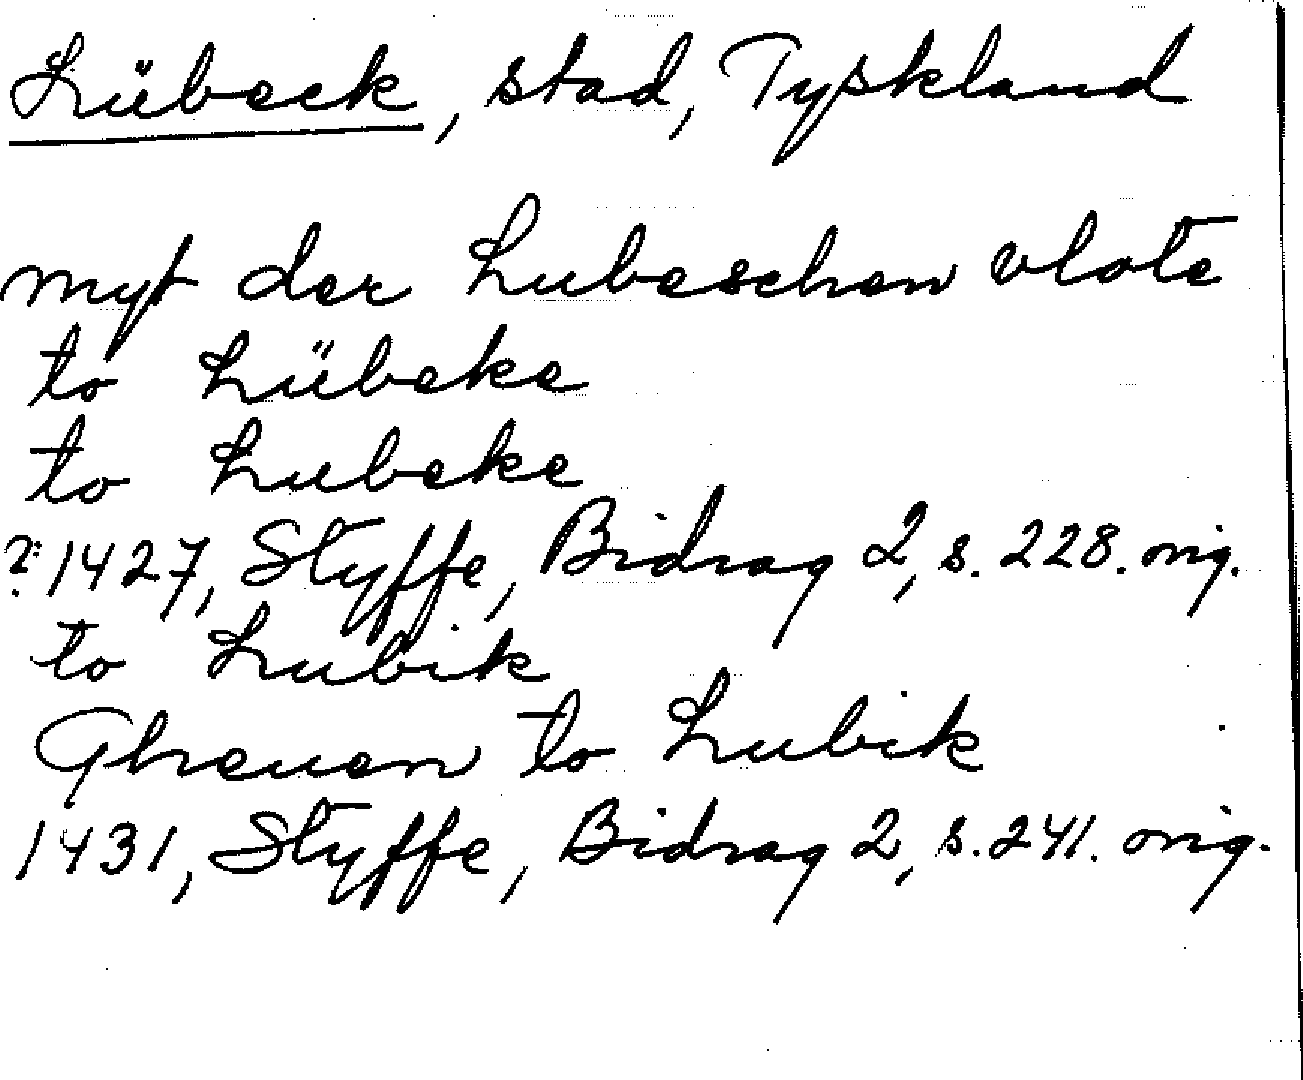 Lübeck, stad, Tyskland
myt der Lubeschen vlote
to Lübeke
to Lubeke
?: 1427, Styffe, Bidrag 2, s. 228. orig.
to Lubik
Gheuen to Lubik
1431, Styffe, Bidrag 2, s. 241. orig.